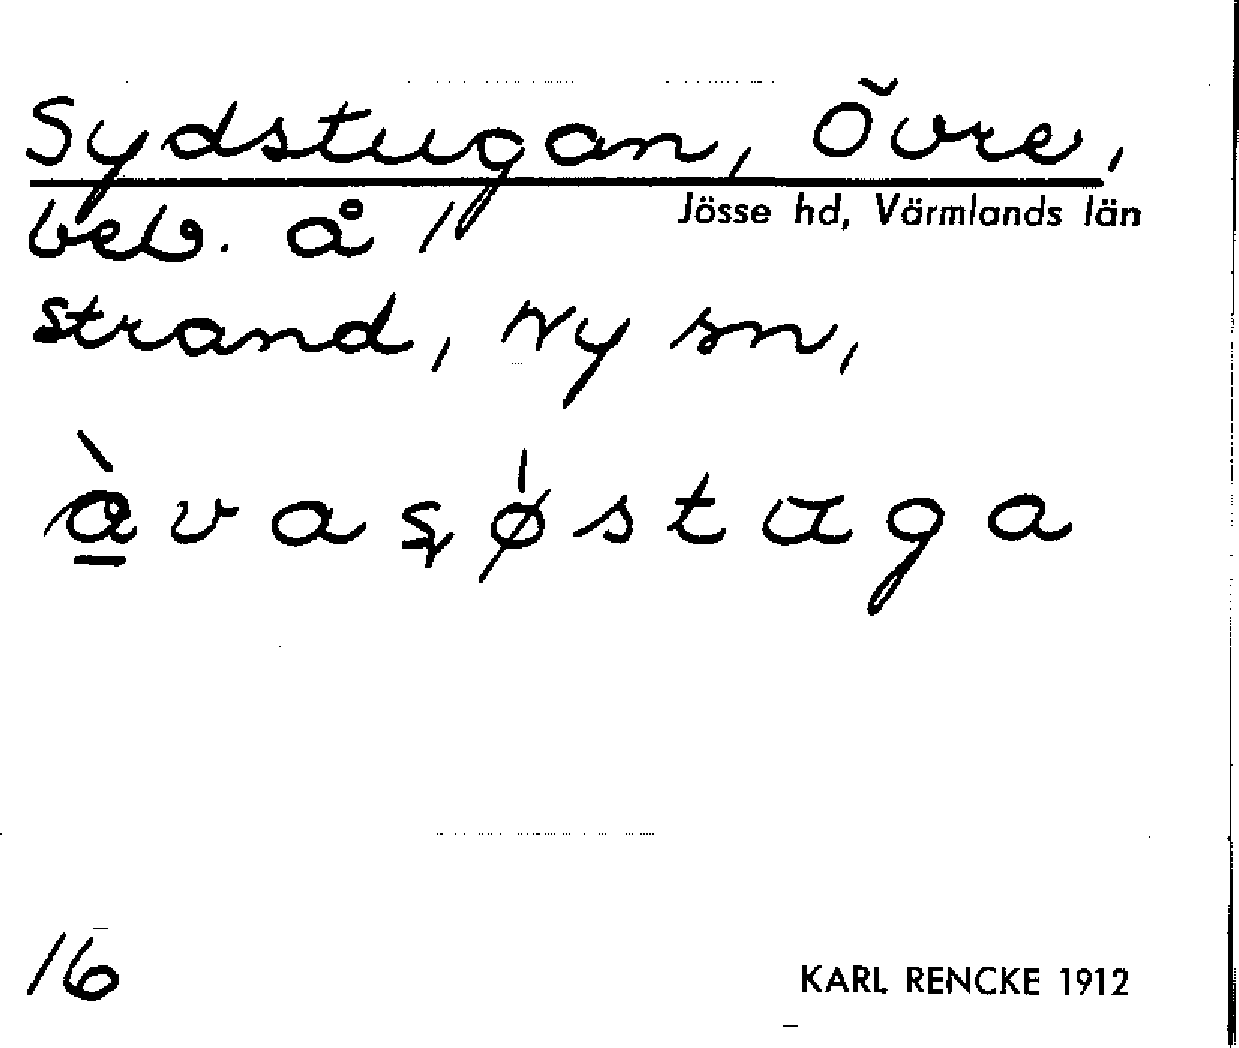 Sydstugan, Övre,
Jösse hd, Värmlands län
beb. å
strand, Ny sn,
16
KARL RENCKE 1912